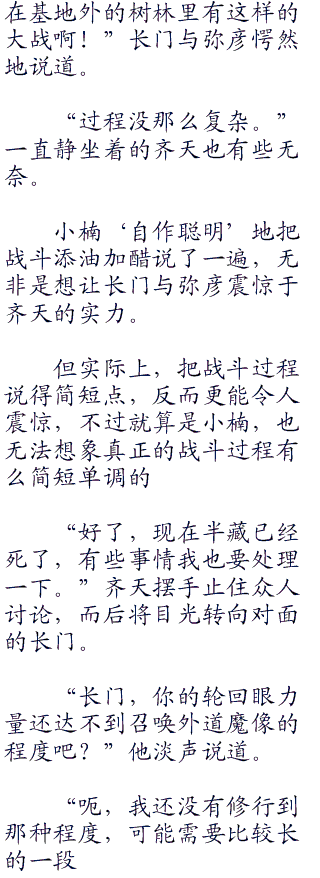 在基地外的树林里有这样的
大战啊！”长门与弥彦愕然
地说道。
“过程没那么复杂。”
一直静坐着的齐天也有些无
奈。
小楠‘自作聪明’地把
战斗添油加醋说了一遍，无
非是想让长门与弥彦震惊于
齐天的实力。
但实际上，把战斗过程
说得简短点，反而更能令人
震惊，不过就算是小楠，也
无法想象真正的战斗过程有
么简短单调的
“好了，现在半藏已经
死了，有些事情我也要处理
一下。”齐天摆手止住众人
讨论，而后将目光转向对面
的长门。
“长门，你的轮回眼力
量还达不到召唤外道魔像的
程度吧？”他淡声说道。
“呃，我还没有修行到
那种程度，可能需要比较长
的一段